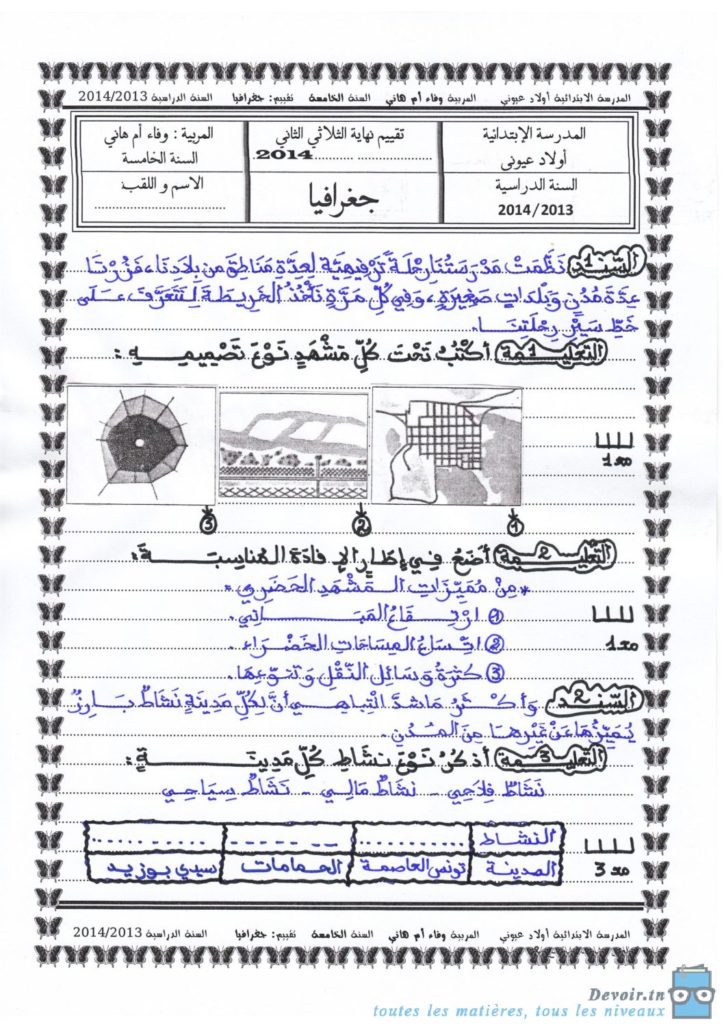 المدرسة الابتدائية أولاد عيوني المربية وفاء أم هاني السنة الخامسة تقييم: جغرافيا السنة الدراسية 2014/2013
المدرسة الإبتدائية
أولاد عيوني
السنة الدراسية
2014/2013
تقييم نهاية الثلاثي الثاني
.................. 2014.......
جغرافيا
المربية : وفاء أم هاني
السنة الخامسة
الاسم و اللقب:
........................
السّند 1 نَظَّمَتْ مَدْرَسَتُنَا رِحْلَةً تَرْفِيهِيَّةً لِعِدَّةِ مَنَاطِقَ مِن بِلَادِنَا، فَزُرْنَا
عِدَّةَ مُدُنٍ وَبَلْدَاتٍ صَغِيرَةٍ، وَفِي كُلِّ مَرَّةٍ نَأْخُذُ الخَرِيطَةَ لِنَتَعَرَّفَ عَلَى
خَطِّ سَيْرِ رِحْلَتِنَا.
التعليمة 1 أكْتُبُ تَحْتَ كُلِّ مَشْهَدٍ نَوْعَ تَصْمِيمِهِ :
مع 1
① ② ③
التعليمة 2 أَضَعُ فِي إِطَارٍ الإِفَادَةَ المُنَاسِبَةَ :
* مِنْ مُمَيِّزَاتِ المَشْهَدِ الحَضَرِي :
① ارْتِفَاعُ المَبَانِي.
② اتِّسَاعُ المِسَاحَاتِ الخَضْرَاء.
مع 1
③ كَثْرَةُ وَسَائِلِ النَّقْلِ وَتَنَوُّعِهَا.
السّند 2 وَأَكْثَرُ مَا شَدَّ انْتِبَاهِي أَنَّ لِكُلِّ مَدِينَةٍ نَشَاطٌ بَارِزٌ
يُمَيِّزُهَا عَنْ غَيْرِهَا مِنَ المُدُنِ.
التعليمة 3 أَذْكُرُ نَوْعَ نَشَاطِ كُلِّ مَدِينَةٍ :
نَشَاطٌ فِلَاحِي - نَشَاطٌ مَالِي - نَشَاطٌ سِيَاحِي
النشاط .......... .......... ..........
المدينة تونس العاصمة الحمامات سيدي بوزيد
مع 3
المدرسة الابتدائية أولاد عيوني المربية وفاء أم هاني السنة الخامسة تقييم: جغرافيا السنة الدراسية 2014/2013
Devoir.tn
toutes les matières, tous les niveaux